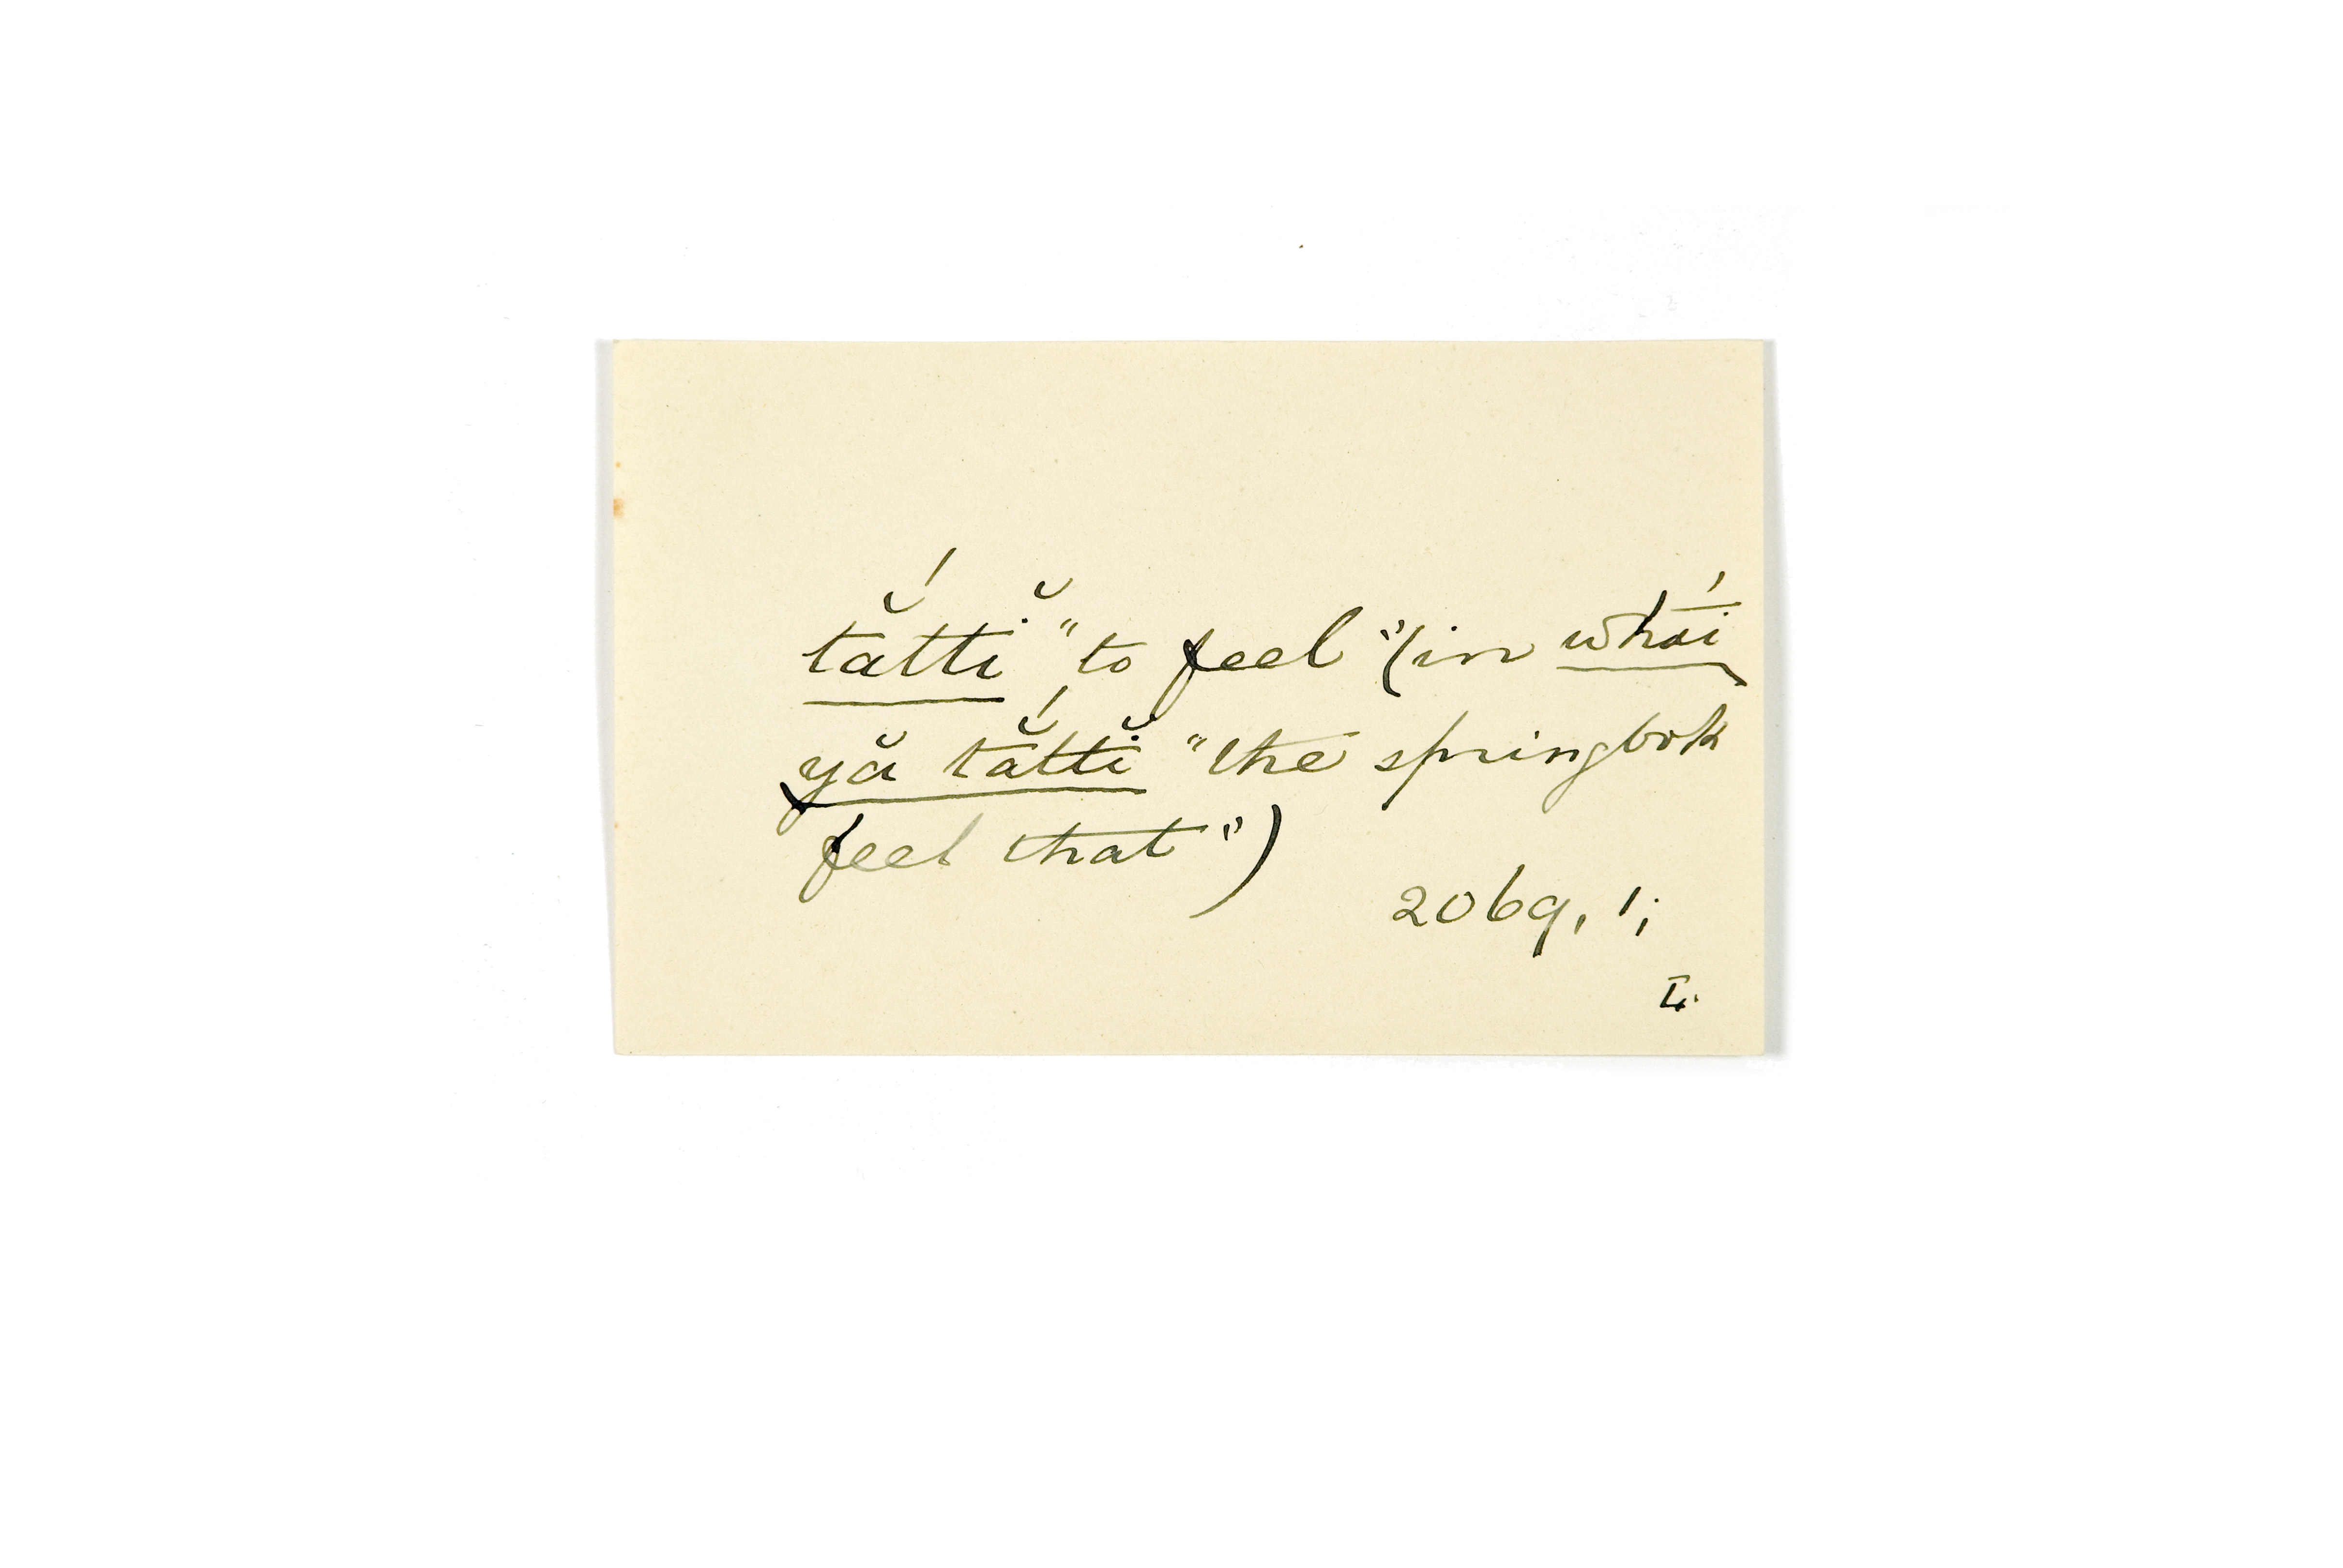 tắttĭ "to feel" (in whā́i
yă tắttĭ "the springbok
feel that")
2069, 1;
L.